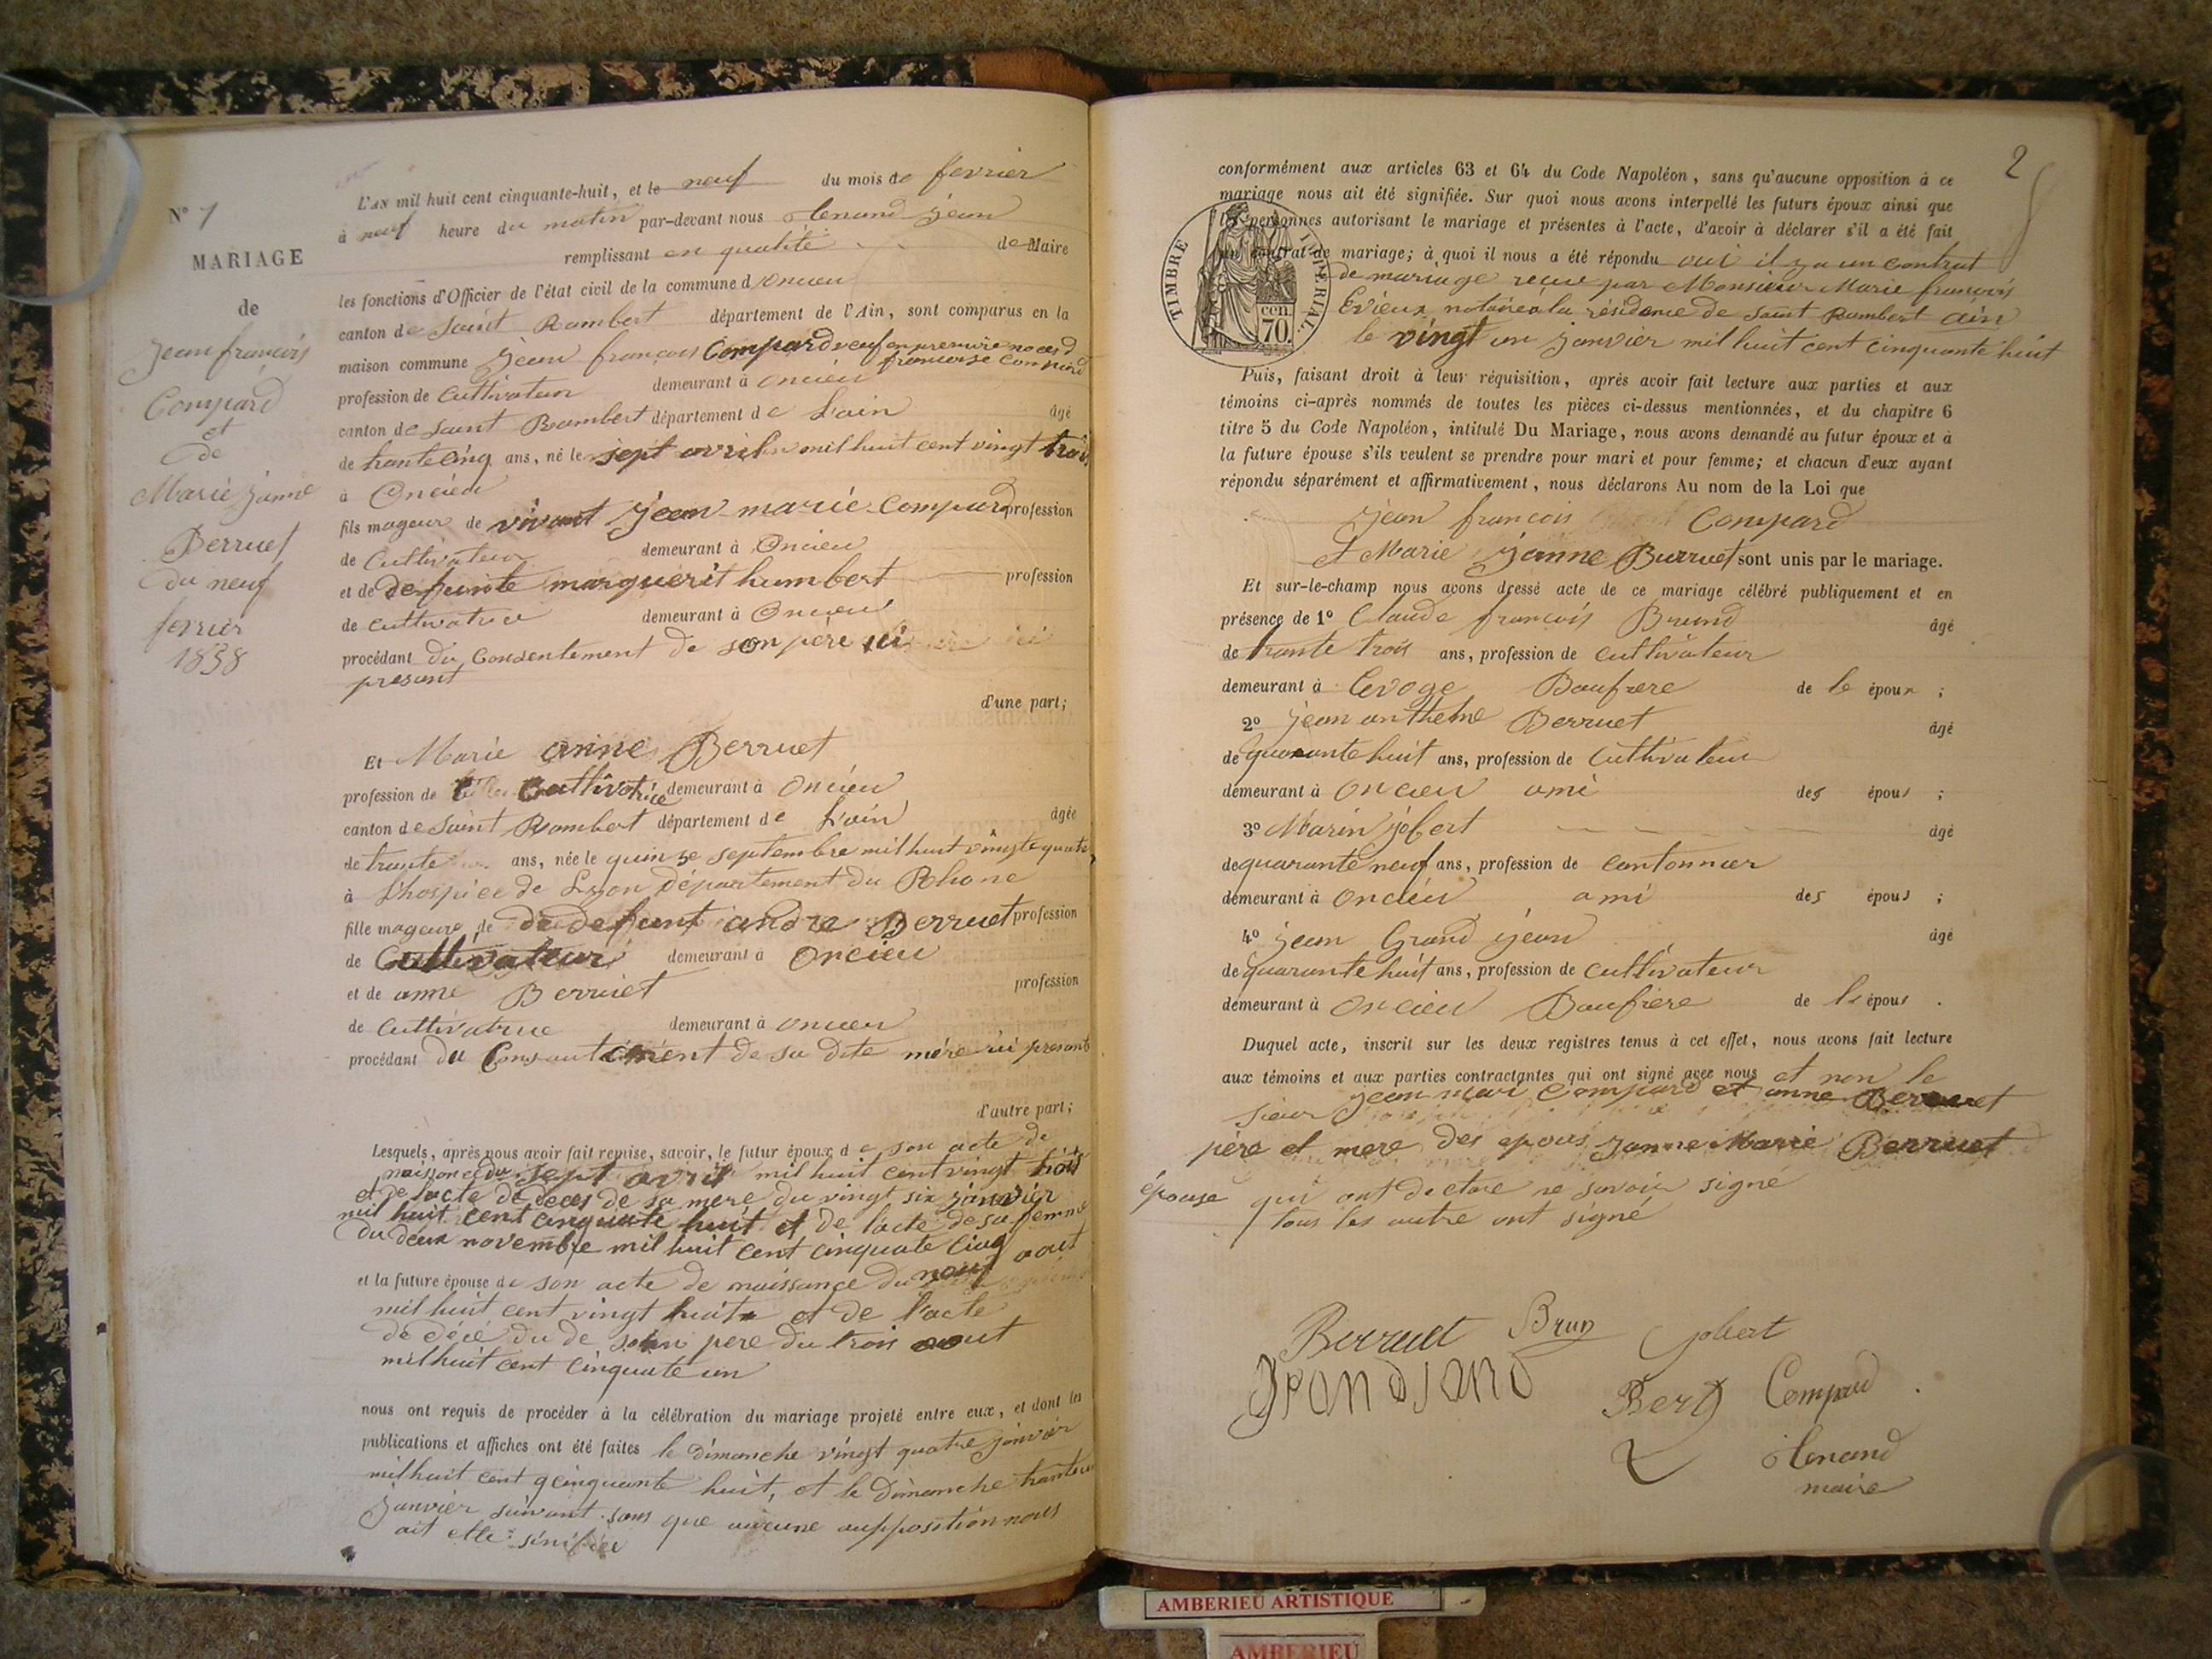 N° 1
MARIAGE
de
Jean francois
Compard
et
de
Marie janne
Berruet
du neuf
fevrier
1858
L'AN mil huit cent cinquante-huit, et le neuf du mois de fevrier
à neuf heure du matin par-devant nous jean
remplissant en qualité de Maire
les fonctions d'Officier de l'état civil de la commune d oncieu
canton de Saint Rambert département de l'Ain, sont comparus en la
maison commune jean françois Compard veuf en premiere noces d
francoise
profession de Cultivateur demeurant à oncieu
canton de Saint Rambert département de L'ain âgé
de trante cinq ans, né le sept avril mil huit cent vingt trois
à Oncieu
fils mageur de vivant jean marie Compard profession
de Cultivateur demeurant à Oncieu
et de defunte marguerit humbert profession
de cultivatrice demeurant à Oncieu
procédant du Consentement de son père ici
present
d'une part;
Et Marie anne Berruet
profession de Cultivatrice demeurant à Oncieu
canton de Saint Rambert département de L'ain âgée
de trante ans, née le quinze septembre mil huit vingte quatre
à L'hospice de Lyon Département du Rhone
fille mageure de de defunt andre Berruet profession
de Cultivateur demeurant à Oncieu
et de anne Berruet profession
de Cultivatrice demeurant à oncieu
procédant du Consentement de sa dite mére ici presente
d'autre part;
Lesquels, après nous avoir fait remise, savoir, le futur époux de son acte de
naissance du sept avril mil huit cent vingt trois
et de lacte de deces de sa mere du vingt six janvier
mil huit cent cinquante huit et de lacte de sa femme
du deux novembre mil huit cent cinquate cinq
et la future épouse de son acte de naissance du neuf aout
mil huit cent vingt huit et de l'acte
de décé du de son pere du trois aout
mil huit cent cinquate un
nous ont requis de procéder à la célébration du mariage projeté entre eux, et dont les
publications et affiches ont été faites le dimanche vingt quatre janvier
mil huit cent cinquante huit, et le Dimanche trante un
janvier suivant sans que aucune aupposition nous
ait etté sinifiée
2
conformément aux articles 63 et 64 du Code Napoléon, sans qu'aucune opposition à ce
mariage nous ait été signifiée. Sur quoi nous avons interpellé les futurs époux ainsi que
les personnes autorisant le mariage et présentes à l'acte, d'avoir à déclarer s'il a été fait
un contrat de mariage; à quoi il nous a été répondu oui il y a un contrat
de mariage recue par Monsieur Marie françois
Evieux notaire a la résidence de Saint Rambert ain
le vingt un janvier mil huit cent cinquante huit
TIMBRE IMPERIAL.
70 cen
Puis, faisant droit à leur réquisition, après avoir fait lecture aux parties et aux
témoins ci-après nommés de toutes les pièces ci-dessus mentionnées, et du chapitre 6
titre 5 du Code Napoléon, intitulé Du Mariage, nous avons demandé au futur époux et à
la future épouse s'ils veulent se prendre pour mari et pour femme; et chacun d'eux ayant
répondu séparément et affirmativement, nous déclarons Au nom de la Loi que
jean francois Compard
et Marie janne Burruet sont unis par le mariage.
Et sur-le-champ nous avons dressé acte de ce mariage célébré publiquement et en
présence de 1° Claude francois Brund âgé
de trante trois ans, profession de cultivateur
demeurant à Evoge Baufrere de le époux ;
2° jean antheme Berruet âgé
de quarante huit ans, profession de Cultivateur
demeurant à Oncieu ami des épous ;
3° Marin jobert âgé
de quarante neuf ans, profession de cantonnier
demeurant à Oncieu ami des épous ;
4° jean Grand jean âgé
de quarante huit ans, profession de cultivateur
demeurant à Oncieu Baufrere de le épous .
Duquel acte, inscrit sur les deux registres tenus à cet effet, nous avons fait lecture
aux témoins et aux parties contractantes qui ont signé avec nous et non le
sieur jean mari Compard et anne Berruet
père et mere des epous janne Marie Berruet
épouse qui ont declare ne savoir signé
tous les autre ont signé
Berruet Brun jobert
grandjand Bert Compard
maire
AMBERIEU ARTISTIQUE
AMBERIEU